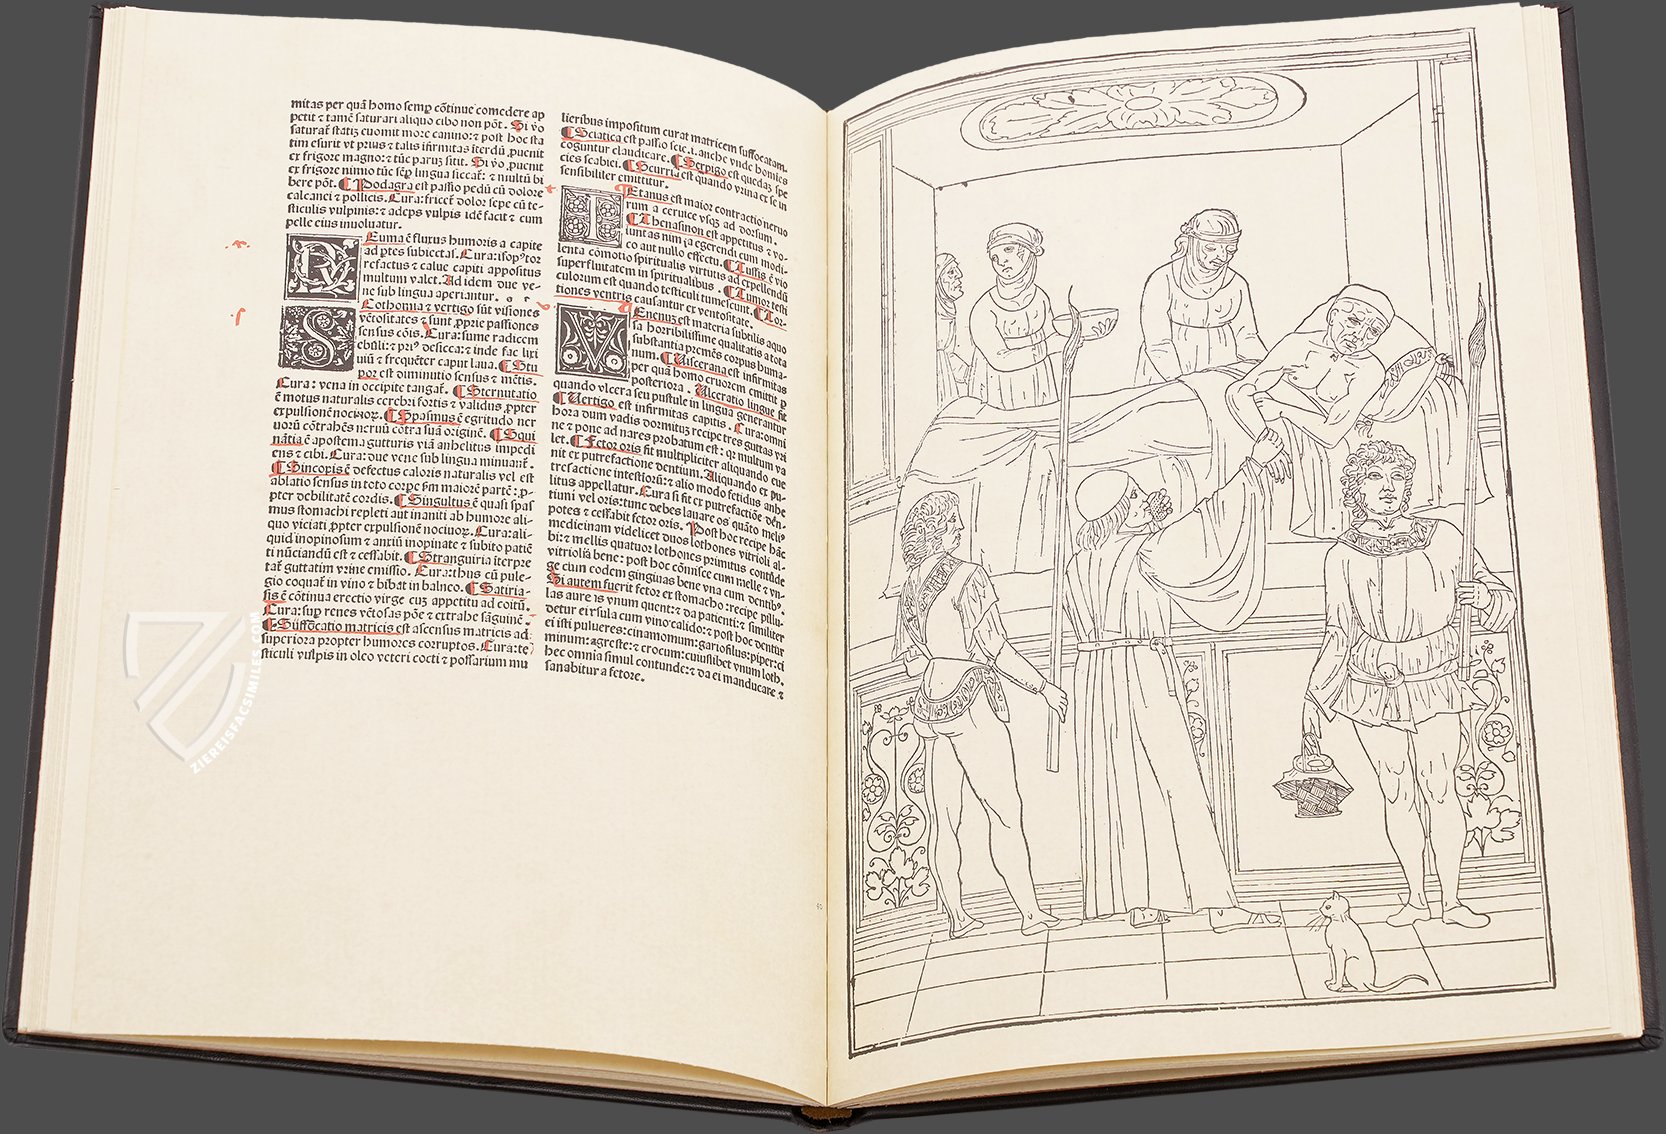 mitas per quã homo semp cõtinue comedere ap
petit ⁊ tamẽ saturari aliquo cibo non põt. Si ṽo
saturat̃ statiʒ euomit more canino: ⁊ post hoc sta
tim esurit vt prius ⁊ talis ifirmitas iterdũ ꝓuenit
ex frigore magno: ⁊ tũc paruʒ sitit. Si ṽo ꝓuenit
ex frigore nimio tũc sẽp lingua siccat̃: ⁊ multũ bi
bere põt. ¶ Podagra est passio pedũ cũ dolore
calcanei ⁊ pollicis. Cura: fricet̃ dolor sepe cũ te-
sticulis vulpinis: ⁊ adeps vulpis idẽ facit ⁊ cum
pelle eius inuoluatur.
Reuma ẽ fluxus humoris a capite
ad ꝑtes subiectas. Cura: isopꝰ tor
refactus ⁊ calue capiti appositus
multum valet. Ad idem due ve-
ne sub lingua aperiantur.
Scothomia ⁊ vertigo sũt visiones
vẽtositates ⁊ sunt ꝓprie passiones
sensus cõis. Cura: sume radicem
ebuli: ⁊ priꝰ desicca: ⁊ inde fac lixi
uiũ ⁊ frequẽter caput laua. ¶ Stu
por est diminutio sensus ⁊ mẽtis.
Cura: vena in occipite tangat̃. ¶ Sternutatio
ẽ motus naturalis cerebri fortis ⁊ validus ꝓpter
expulsionẽ nociuoꝝ. ¶ Spasmus ẽ egritudo ner
uorũ cõtrahẽs neruũ cõtra suã originẽ. ¶ Squi
nãtia ẽ apostema gutturis viã anhelitus impedi
ens ⁊ cibi. Cura: due vene sub lingua minuant̃.
¶ Sincopis ẽ defectus caloris naturalis vel est
ablatio sensus in toto corpe ẽm maiorẽ partẽ: ꝓ-
pter debilitatẽ cordis. ¶ Singultus ẽ quasi spas
mus stomachi repleti aut inaniti ab humore ali-
quo viciati ꝓpter expulsionẽ nociuoꝝ. Cura: ali-
quid inopinosum ⁊ anxiũ inopinate ⁊ subito patiẽ
ti nũciandũ est ⁊ cessabit. ¶ Stranguiria iterpre
tat̃ guttatim vrine emissio. Cura: thus cũ pule-
gio coquat̃ in vino ⁊ bibat in balneo. ¶ Satiria-
sis ẽ cõtinua erectio virge cuʒ appetitu ad coitũ.
Cura: suꝑ renes vẽtosas põe ⁊ extrahe sãguinẽ.
¶ Suffocatio matricis est ascensus matricis ad
superiora propter humores corruptos. Cura: te
sticuli vulpis in oleo veteri cocti ⁊ possarium mu
lieribus impositum curat matricem suffocatam.
¶ Sciatica est passio scie .i. anche vnde homies
coguntur claudicare. ¶ Serpigo est quedaʒ spe
cies scabiei. ¶ Scurria est quando vrina ex se in
sensibiliter emittitur.
Tetanus est maior contractio neruo
rum a ceruice vsqʒ ad dorsum.
¶ Thenasinon est appetitus ⁊ vo-
luntas nimia egerendi cum modi-
co aut nullo effectu. ¶ Tussis ẽ vio
lenta cõmotio spiritualis virtutis ad expellendũ
superfluitatem in spiritualibus. ¶ Tumor testi
culorum est quando testiculi tumescunt. ¶ Tor-
tiones ventris causantur ex ventositate.
Venenuʒ est materia subtilis aquo
sa horribilissime qualitatis a tota
substantia premẽs corpus huma-
num. ¶ Viscerana est infirmitas
per quã homo cruorem emittit p
posteriora. Ulceratio lingue fit
quando vlcera seu pustule in lingua generantur
¶ Uertigo est infirmitas capitis. Cura: omni
hora dum vadis dormitus recipe tres guttas vri
ne ⁊ pone ad nares probatum est: qꝛ multum va
let. ¶ Fetor oris fit multipliciter aliquando eue
nit ex putrefactione dentium. Aliquando ex pu-
trefactione intestiorũ: ⁊ alio modo fetidus anhe
litus appellatur. Cura si fit ex putrefactiõe dẽn-
tium vel oris: tunc debes lauare os quãto meliꝰ
potes ⁊ cessabit fetor oris. Post hoc recipe hãc
medicinam videlicet duos lothones vitrioli al-
bi: ⁊ mellis quatuor lothones primitus contũde
vitriolũ bene: post hoc cõmisce cum melle ⁊ vn-
ge cum eodem gingiuas bene vna cum dentibꝰ.
Si autem fuerit fetor ex stomacho: recipe pillu-
las aure is vnum quent: ⁊ da patienti: ⁊ similiter
detur ei rsula cum vino calido: ⁊ post hoc dentur
ei isti pulueres: cinamomum: gariofilus: piper: ci
minum: agreste: ⁊ crocum: cuiuslibet vnum loth.
hec omnia simul contunde: ⁊ da ei manducare ⁊
sanabitur a fetore.
ZIEREISFACSIMILES.COM